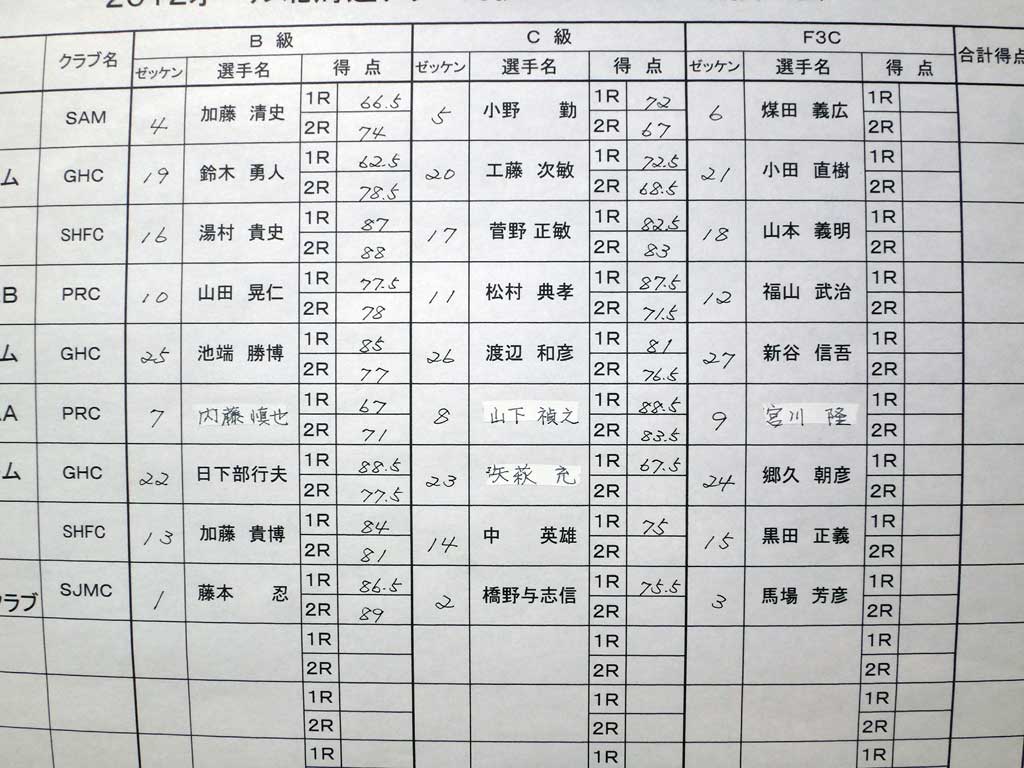 2012
クラブ名 B 級 C 級 F3C 合計得点
ゼッケン 選手名 得 点 ゼッケン 選手名 得 点 ゼッケン 選手名 得 点
SAM 4 加藤 清史 1R 66.5 5 小野 勤 1R 72 6 煤田 義広 1R
2R 74 2R 67 2R
ム GHC 19 鈴木 勇人 1R 62.5 20 工藤 次敏 1R 72.5 21 小田 直樹 1R
2R 78.5 2R 68.5 2R
SHFC 16 湯村 貴史 1R 87 17 菅野 正敏 1R 82.5 18 山本 義明 1R
2R 88 2R 83 2R
B PRC 10 山田 晃仁 1R 77.5 11 松村 典孝 1R 87.5 12 福山 武治 1R
2R 78 2R 71.5 2R
ム GHC 25 池端 勝博 1R 85 26 渡辺 和彦 1R 81 27 新谷 信吾 1R
2R 77 2R 76.5 2R
A PRC 7 内藤 慎也 1R 67 8 山下 禎之 1R 88.5 9 宮川 隆 1R
2R 71 2R 83.5 2R
ム GHC 22 日下部行夫 1R 88.5 23 矢萩 充 1R 67.5 24 郷久 朝彦 1R
2R 77.5 2R 2R
SHFC 13 加藤 貴博 1R 84 14 中 英雄 1R 75 15 黒田 正義 1R
2R 81 2R 2R
クラブ SJMC 1 藤本 忍 1R 86.5 2 橋野与志信 1R 75.5 3 馬場 芳彦 1R
2R 89 2R 2R
1R 1R 1R
2R 2R 2R
1R 1R 1R
2R 2R 2R
1R 1R 1R